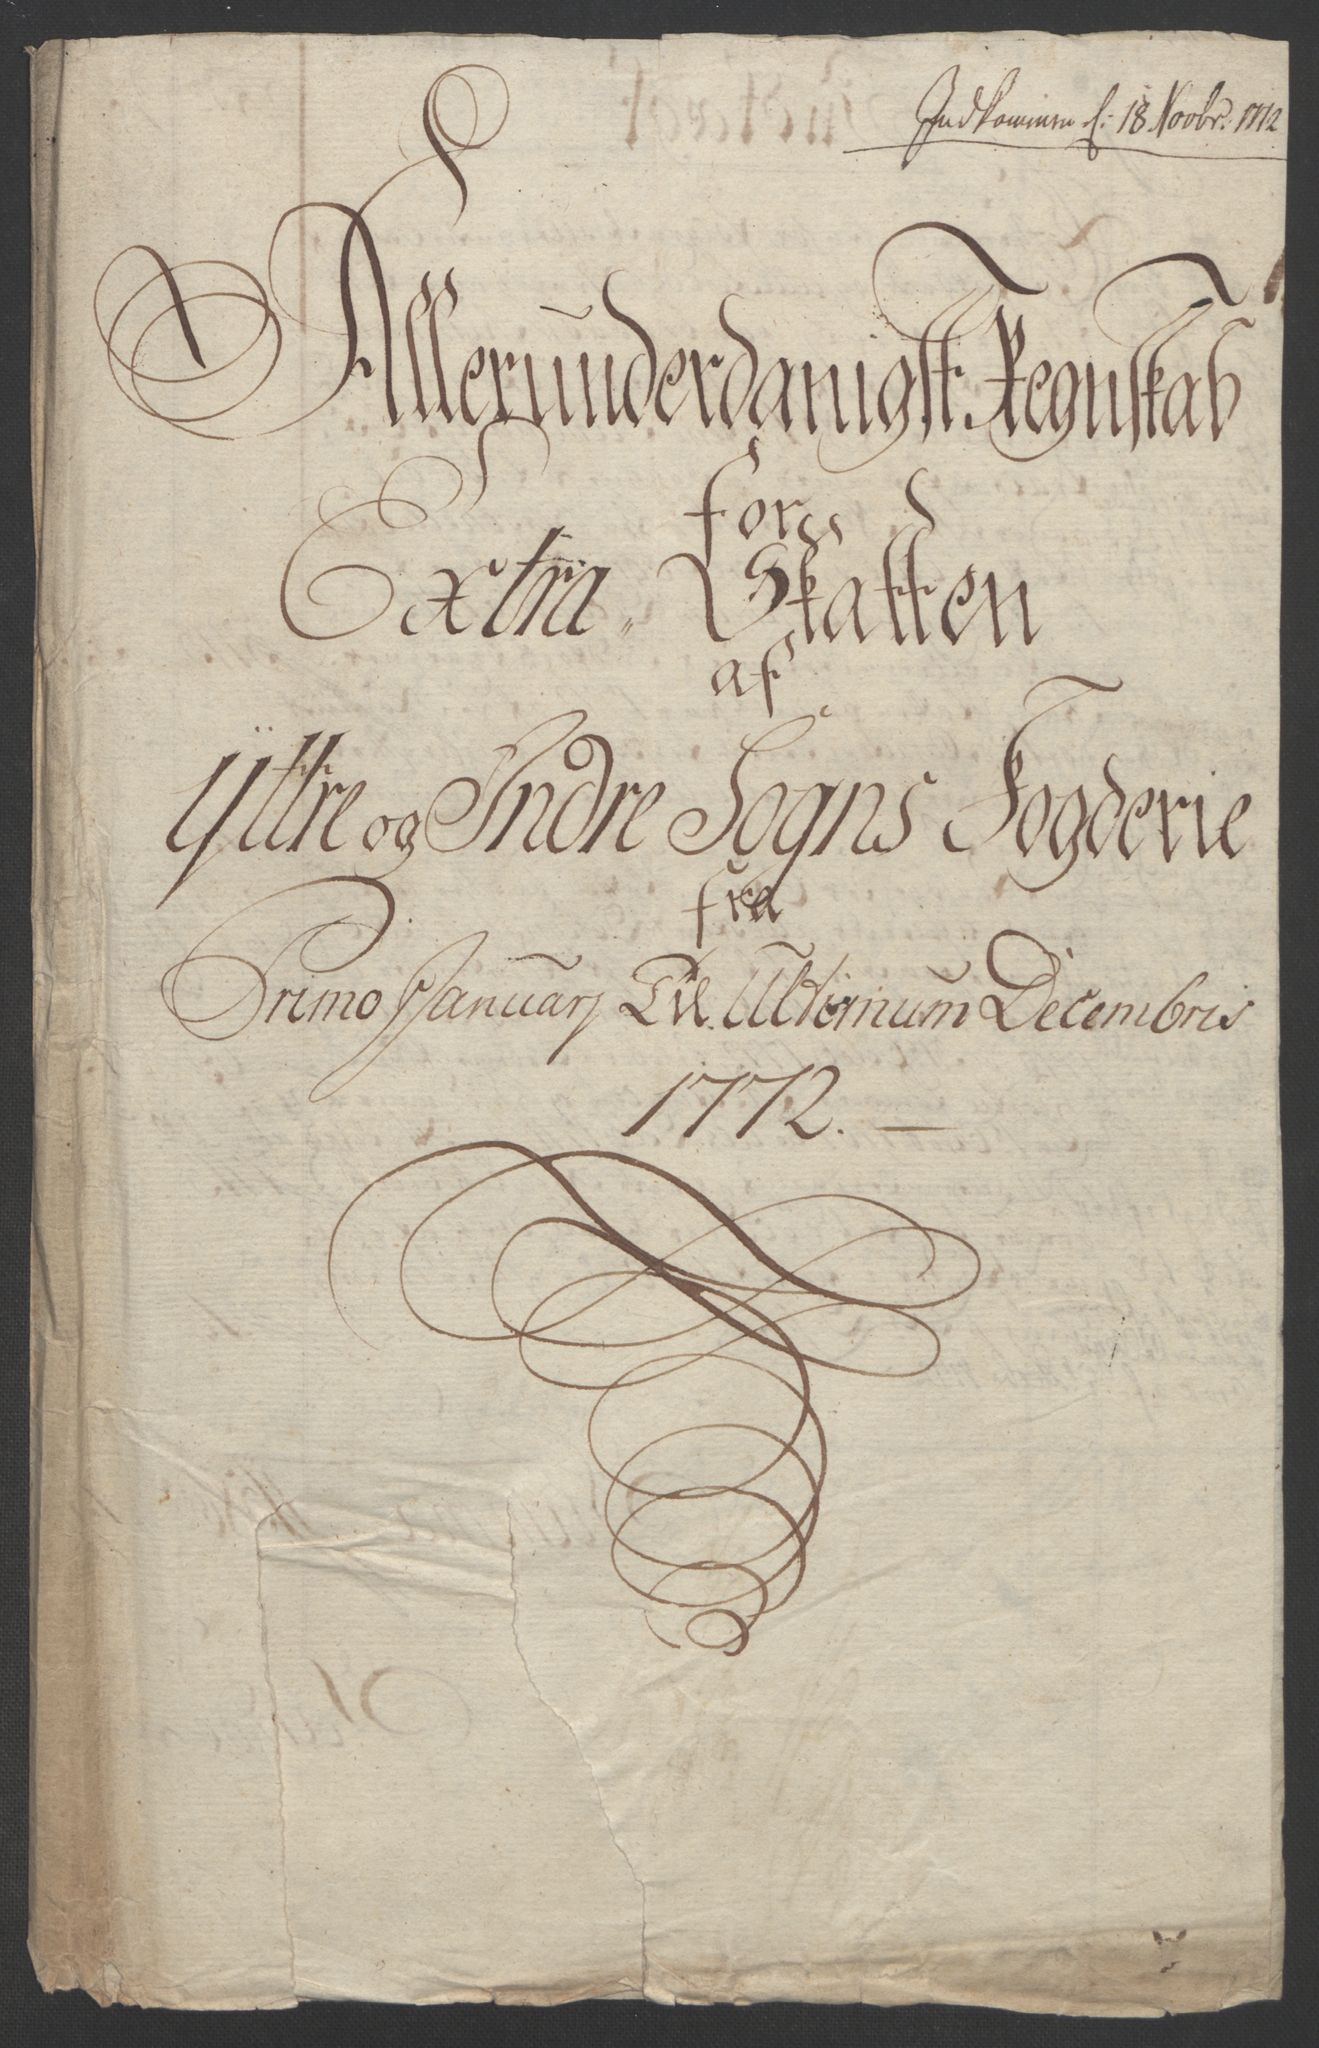 Indkommen d: 18 Novbr: 1772
Allerunderdanigst Regnskab
for
Extra„ Skatten
af
Ÿttre og Indre Sogns Fogderie
fra
Primo Januarj Til Ultimum Decembris
1772. —